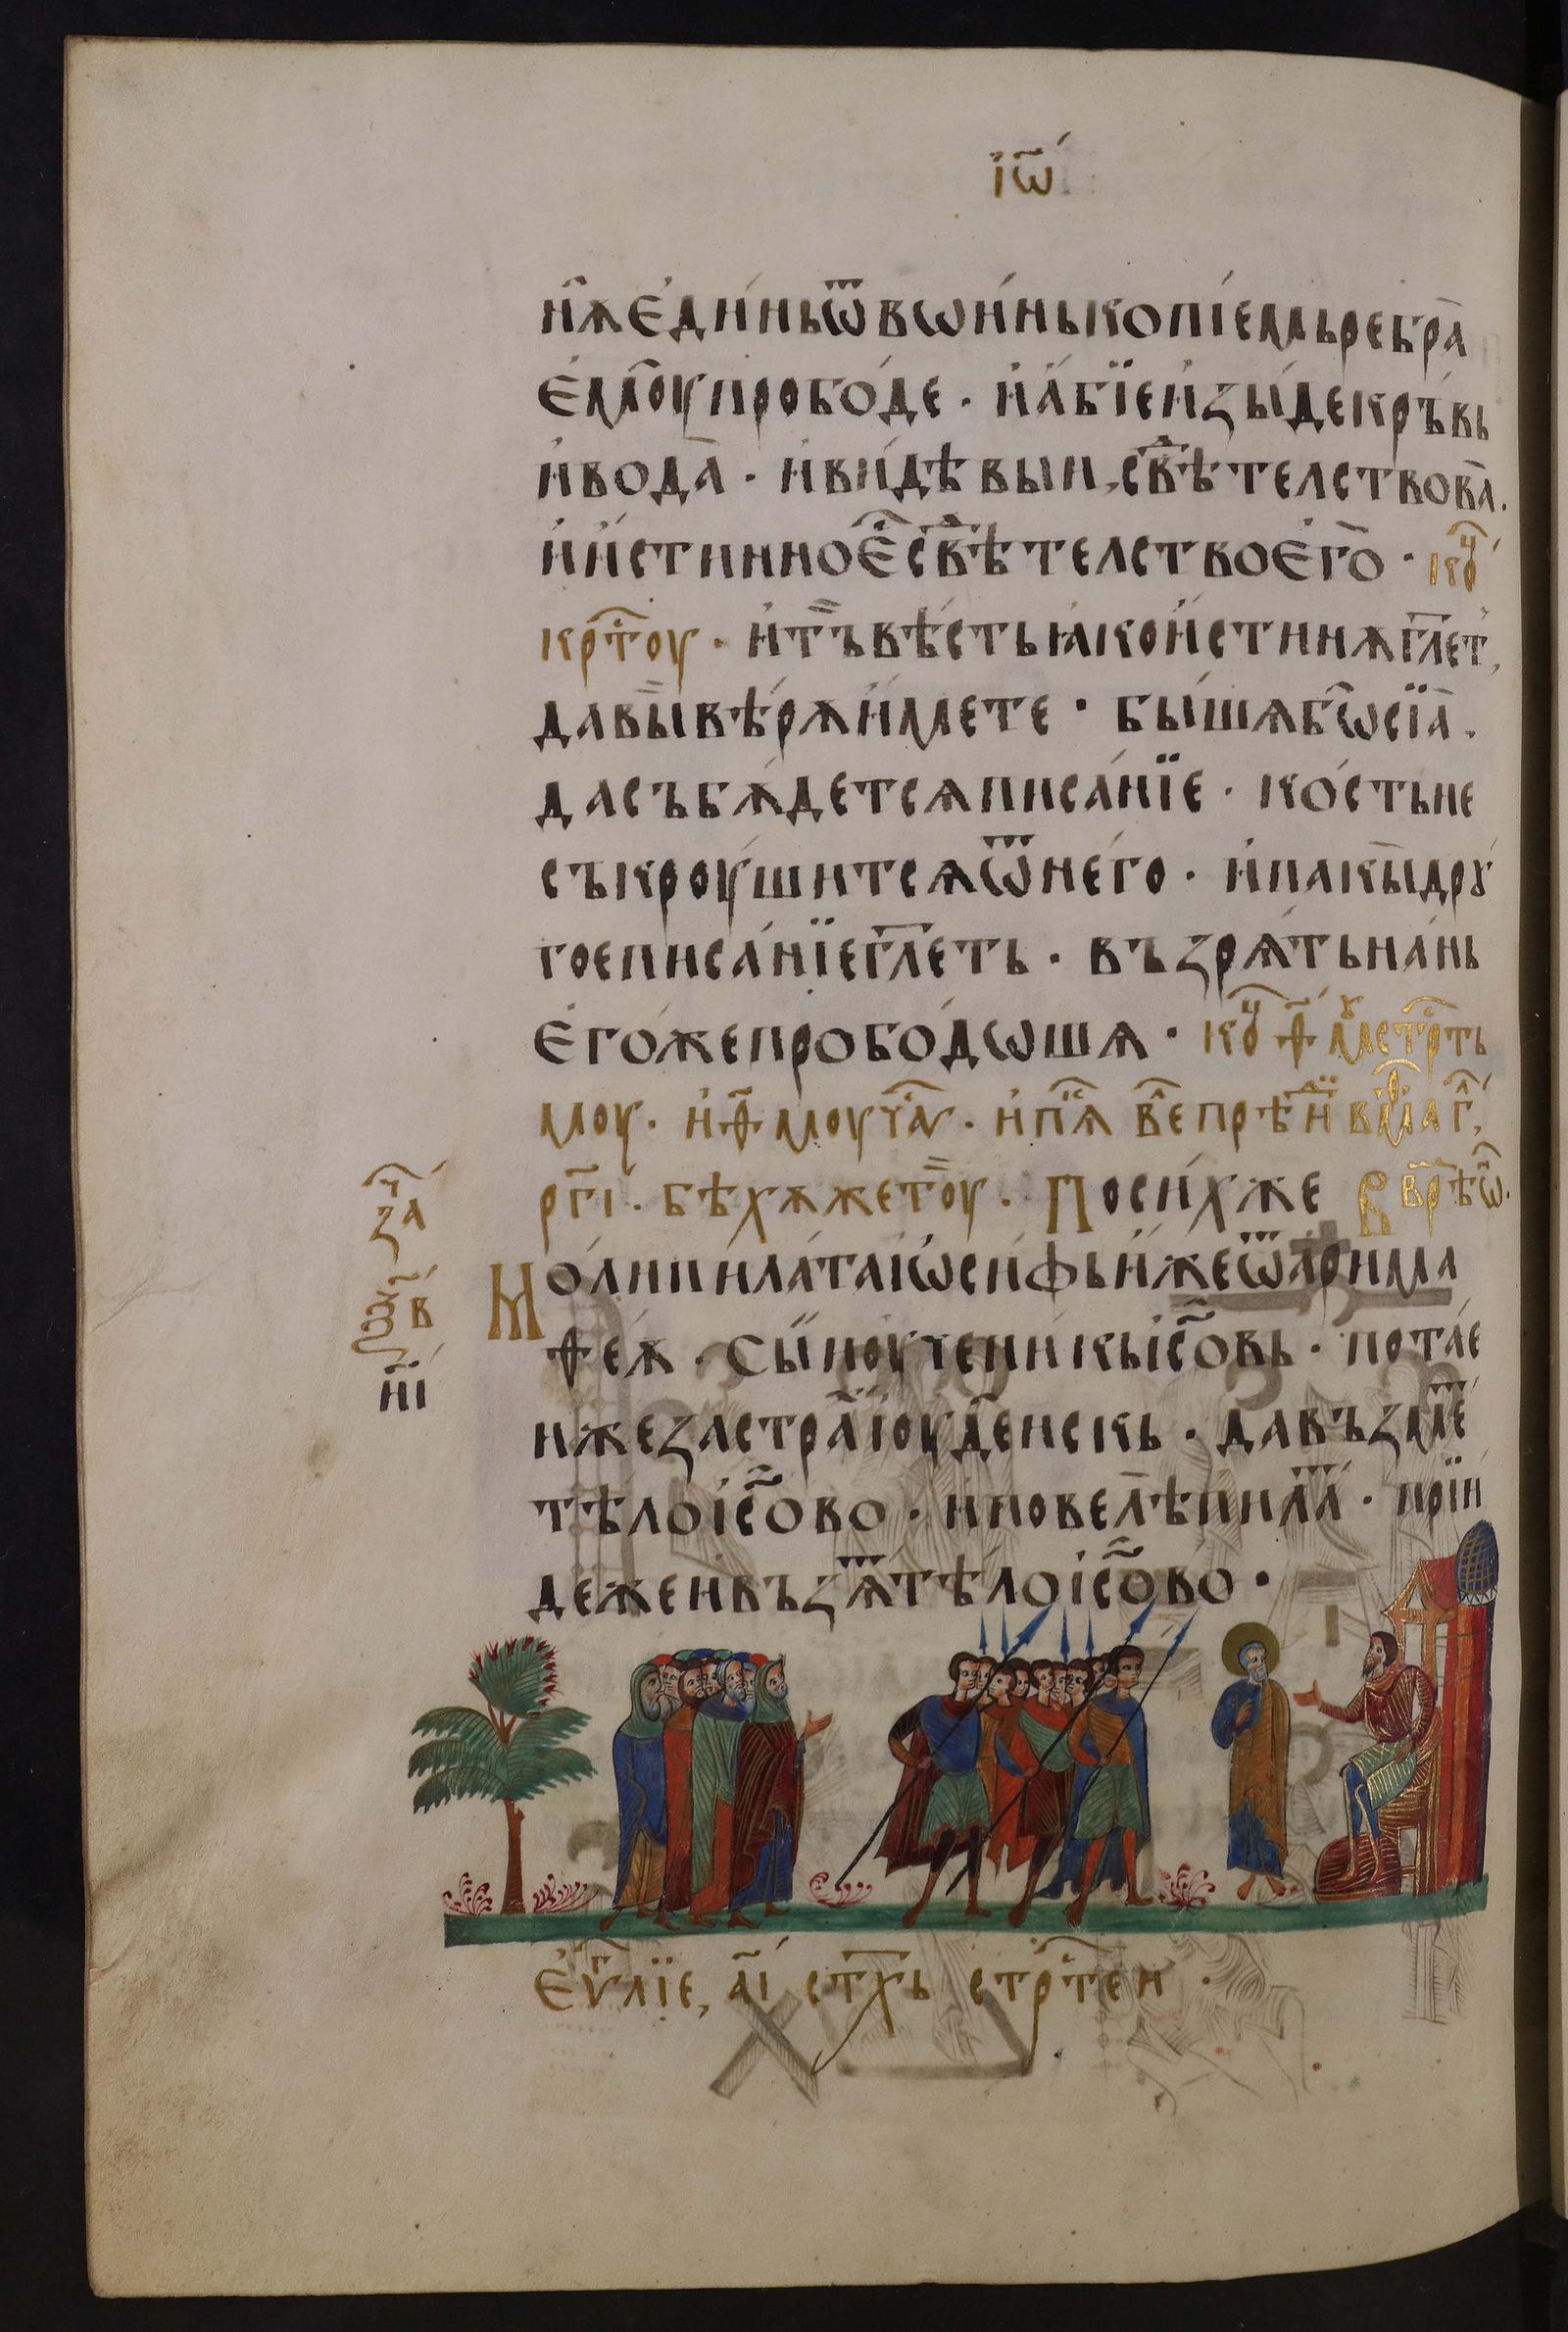 і҆ѡ҃
нѫ є҆ди́нь ѿ вѡи́нь копі́емь ребра̀
є҆моу̀ прободе · и҆ а҆бїе и҆зы́де кръ́вь
и҆ вода̀ · и҆ ви́дѣвыи, свⷣѣтелствова̀.
и҆ и҆́стинно є҆ⷭ свⷣѣтелство є҆го̀ · коⷰ
крⷭтоу · и҆ тъ̏ вѣ́сть ꙗ҆ко и҆́стинѫ гл҃еть,
да вы̏ вѣ́рѫ и҆́мете · бы́шѫ бѡ̀ сїа̀.
да съ бѫ́детсѧ писа́нїе · ко́сть не
съкроу́шитсѧ ѿ него · и҆ пакы̀ дрꙋ́
гое писа́нїе гл҃еть · въ зрѧ́ть на́нь
є҆го́же пробо́дѡшѧ · коⷰ ѳ҃ мꙋ стрⷭть
моу · и҆ ѳ҃ моу чаⷭ · и҆ пⷭѧ
рг҃і · бѣхѫ же тоу̏ · По си́хже В врѣⷨѡ.
за
в
н҃і
Моли пила́та і҆ѡ́сифь и҆́же ѿ а҆рима
ѳеѫ · Сы́и оу҆ченикь і҆с҃овь · потаѐ
иже за стра̀ і҆оуде́искь · да въ зме́ⷮ
тѣло і҆с҃ово · и҆ повелѣ̀ пила́ⷮ · прїи
де же и҆ въ зѧ́ⷮ тѣ́ло і҆с҃ово ·
Є҆ѵⷢ҇лїе, а҃і стⷯь стрⷭтеи ·